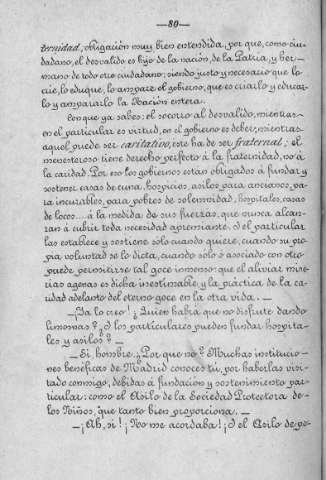 —80—
ternidad, obligación muy bien entendida, por que, como ciu-
dadano, el desvalido es hijo de la nación, de la Patria, y her-
mano de todo otro ciudadano; siendo justo y necesario que lo
crie, lo eduque, lo ampare el gobierno, que es criarlo y educar-
lo y ampararlo la Nación entera.
Conque ya sabes: el socorro al desvalido, mientras
en el particular es virtud, en el gobierno es deber; mientras
aquel puede ser caritativo, este ha de ser fraternal; el
menesteroso tiene derecho perfecto á la fraternidad, no á
la caridad. Por eso los gobiernos están obligados á fundar y
sostener casas de cuna, hospicios, asilos para ancianos, pa-
ra incurables, para pobres de solemnidad, hospitales, casas
de locos.... á la medida de sus fuerzas, que nunca alcan-
zan á cubrir toda necesidad apremiante. I el particular
las establece y sostiene sólo cuando quiere, cuando su pro-
pia voluntad se lo dicta, cuando solo ó asociado con otro
puede permitirse tal goce inmenso: que el aliviar mise-
rias agenas es dicha inestimable y la práctica de la ca-
ridad adelanto del eterno goce en la otra vida. —
—¡Ya lo creo! ¿Quien habrá que no disfrute dando
limosnas? ¿I los particulares pueden fundar hospita-
les y asilos? —
—Si, hombre. ¿Por que no? Muchas institucio-
nes benéficas de Madrid conoces tú, por haberlas visi-
tado conmigo, debidas á fundación y sostenimiento par-
ticular: como el Asilo de la Sociedad Protectora de
los Niños, que tanto bien proporciona. —
—¡Ah, si! ¡No me acordaba! ¡I el Asilo de